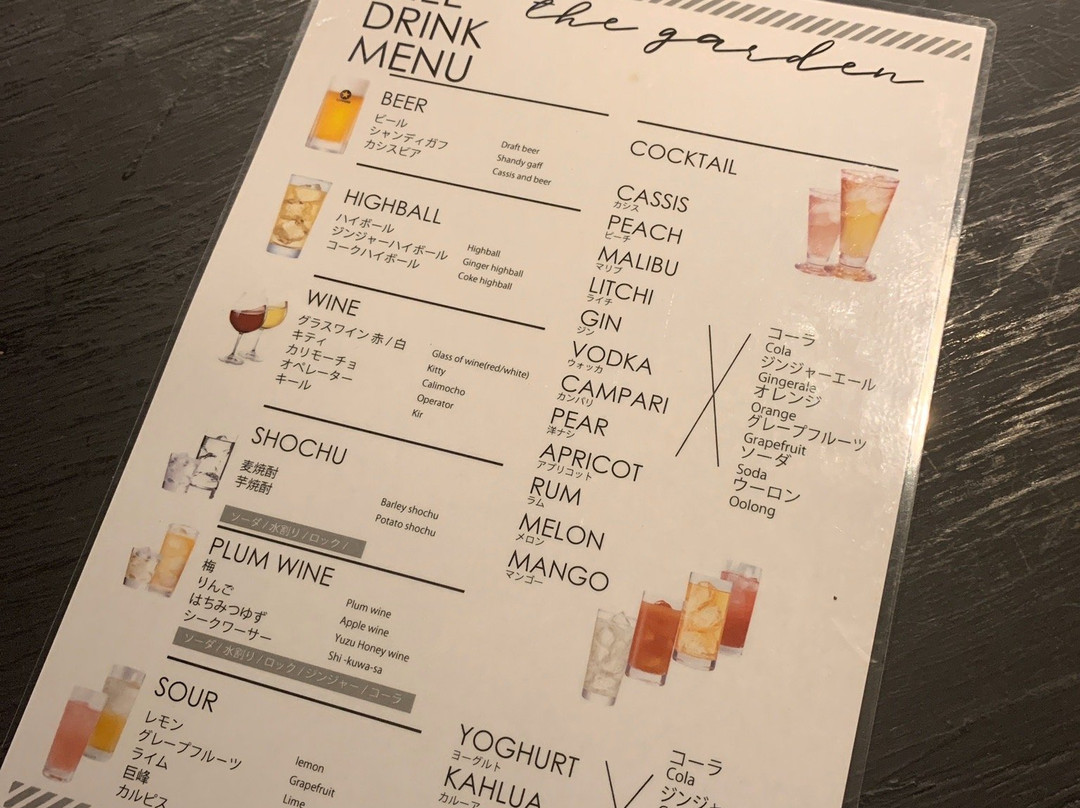 DRINK
MENU
the garden
BEER
ビール
シャンディガフ
カシスビア
Draft beer
Shandy gaff
Cassis and beer
HIGHBALL
ハイボール
ジンジャーハイボール
コークハイボール
Highball
Ginger highball
Coke highball
WINE
グラスワイン 赤 / 白
キティ
カリモーチョ
オペレーター
キール
Glass of wine(red/white)
Kitty
Calimocho
Operator
Kir
SHOCHU
麦焼酎
芋焼酎
Barley shochu
Potato shochu
ソーダ / 水割り / ロック /
PLUM WINE
梅
りんご
はちみつゆず
シークワーサー
Plum wine
Apple wine
Yuzu Honey wine
Shi -kuwa-sa
ソーダ / 水割り / ロック / ジンジャー / コーラ
SOUR
レモン
グレープフルーツ
ライム
巨峰
カルピス
lemon
Grapefruit
Lime
COCKTAIL
CASSIS
カシス
PEACH
ピーチ
MALIBU
マリブ
LITCHI
ライチ
GIN
ジン
VODKA
ウォッカ
CAMPARI
カンパリ
PEAR
洋ナシ
APRICOT
アプリコット
RUM
ラム
MELON
メロン
MANGO
マンゴー
コーラ
Cola
ジンジャーエール
Gingerale
オレンジ
Orange
グレープフルーツ
Grapefruit
ソーダ
Soda
ウーロン
Oolong
YOGHURT
ヨーグルト
KAHLUA
カルーア
コーラ
Cola
ジンジャ